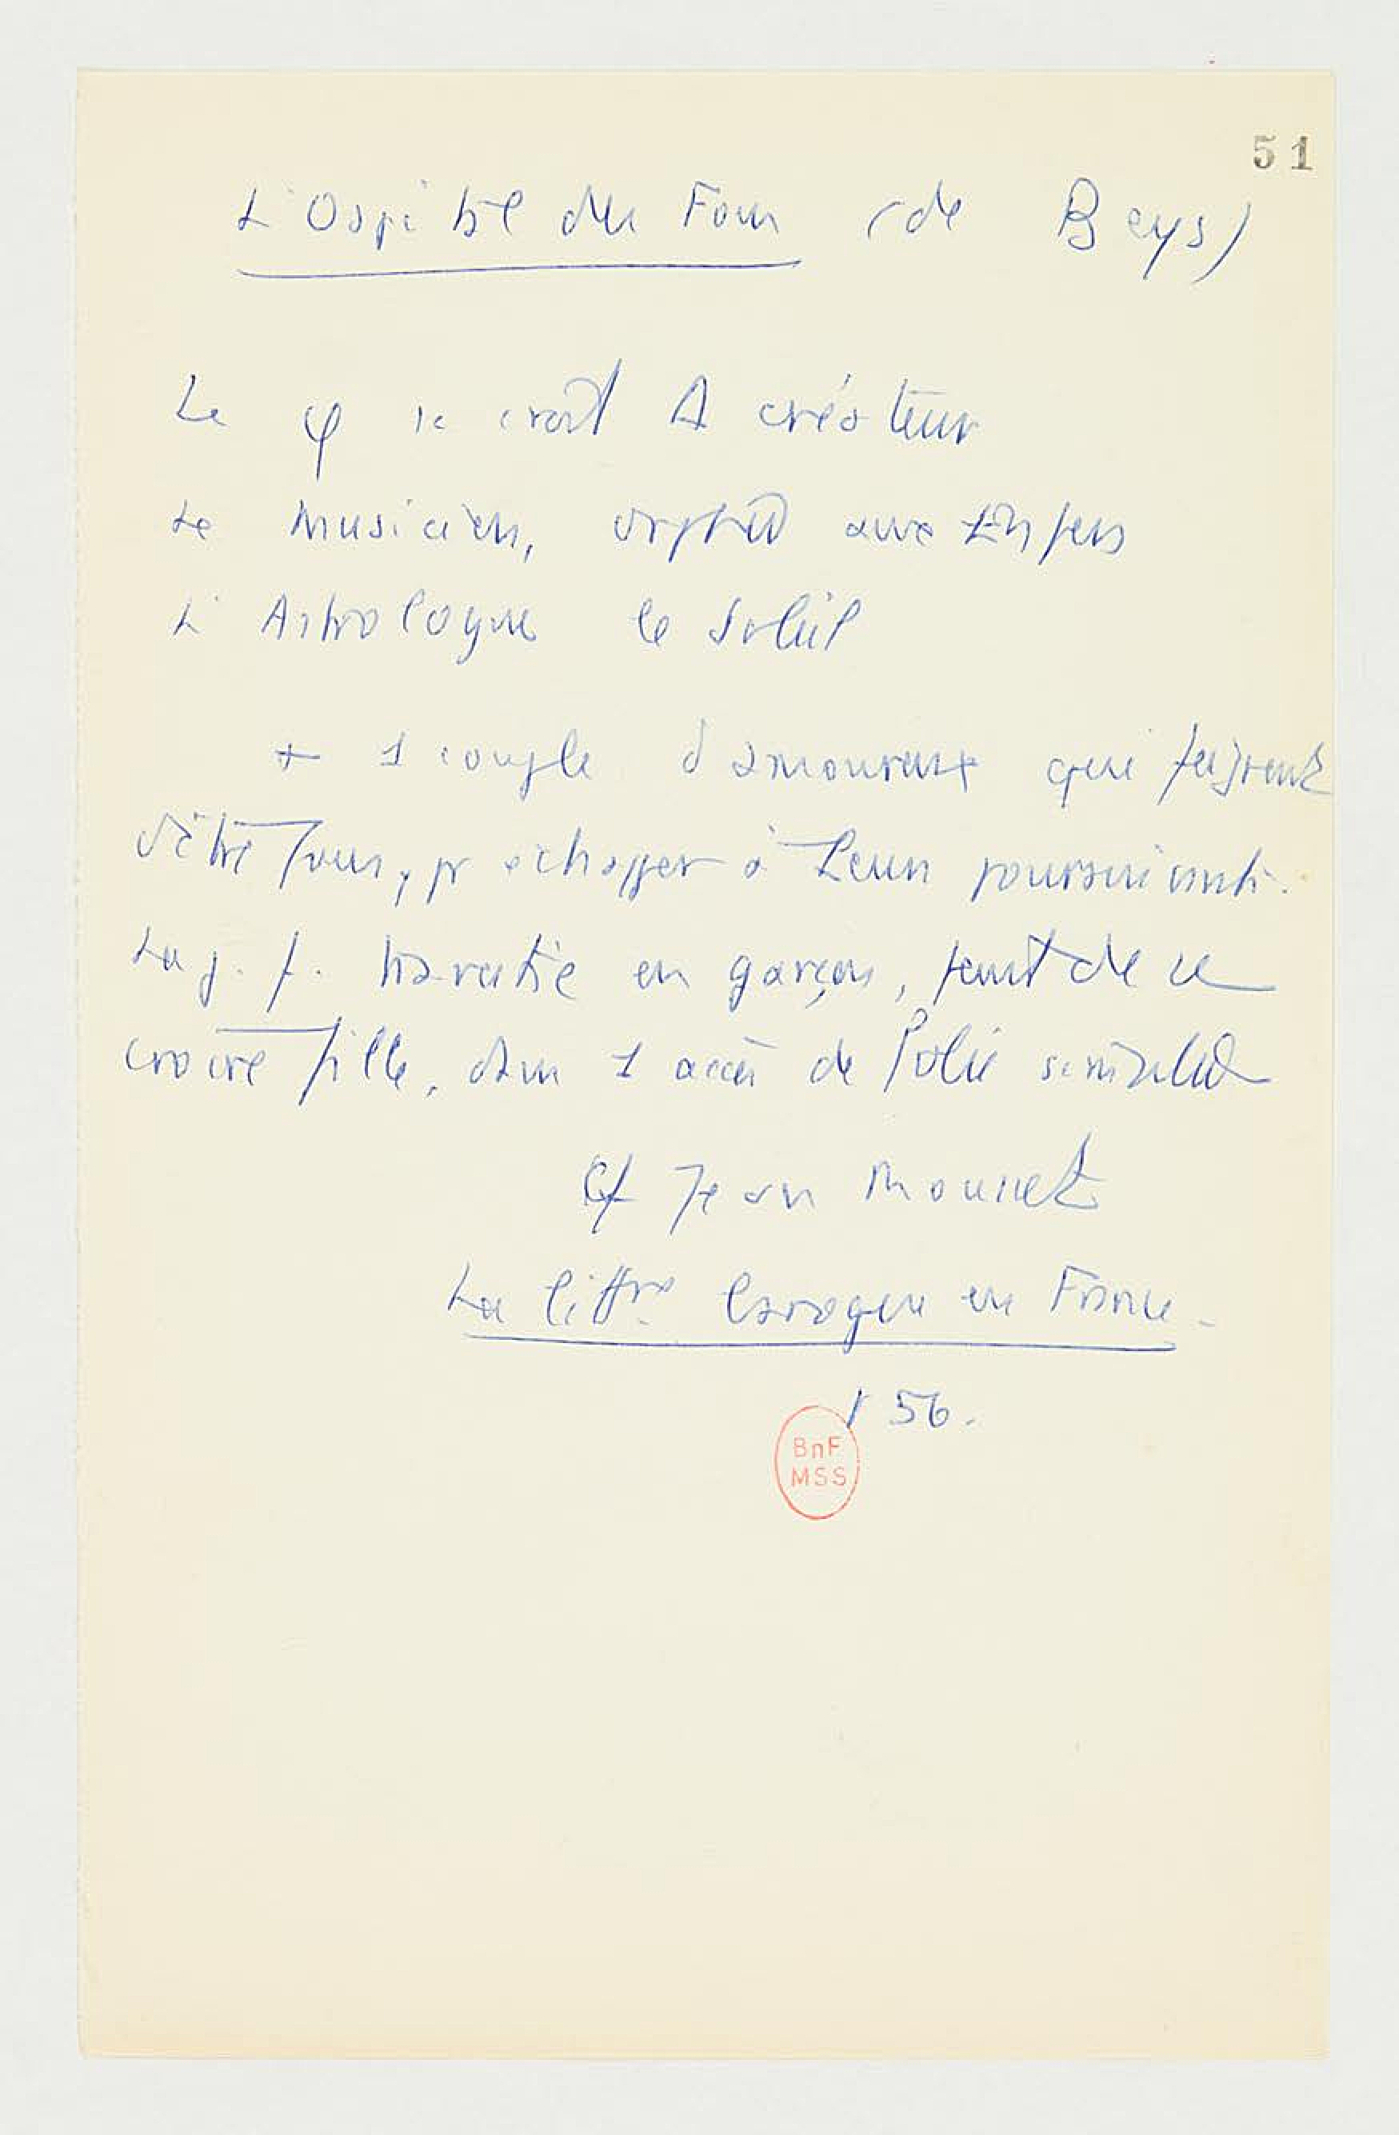 51
L'Ospital des Fous (de Beys)
Le φ se croit Δ créateur
Le Musicien, Orphée aux Enfers
L'Astrologue le Soleil
+ 1 couple d'amoureux qui feignent
d'être fous, pr échapper à Leurs poursuivants.
La j. f. travestie en garçon, feint de se
croire fille, dans 1 accès de folie simulée
Cf Jean Rousset
La littre baroque en France.
p 56.
BnF
MSS